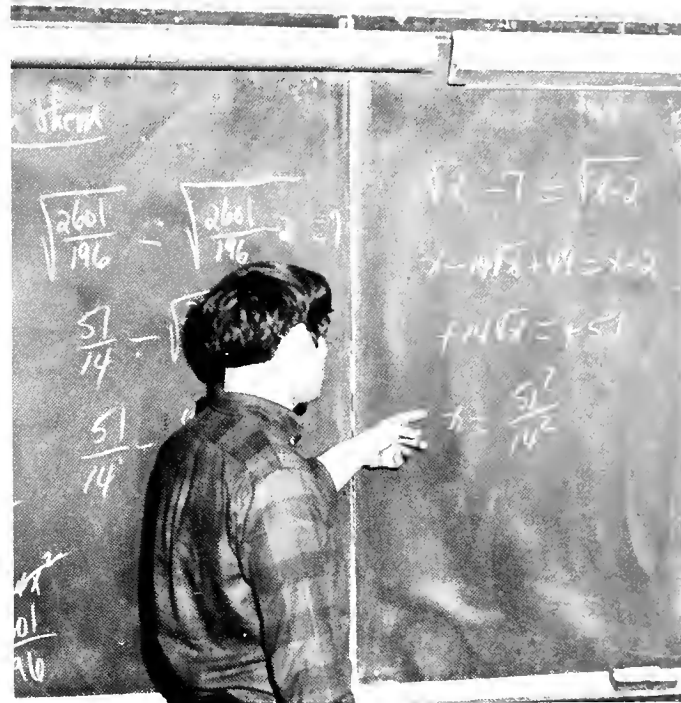 √(2601/196) - √(2601/196 - 2) = 7
51/14 - √
51/14 -
01/96
√x - 7 = √(x-2)
x - 14√x + 49 = x - 2
+14√x = +51
x = 51²/14²